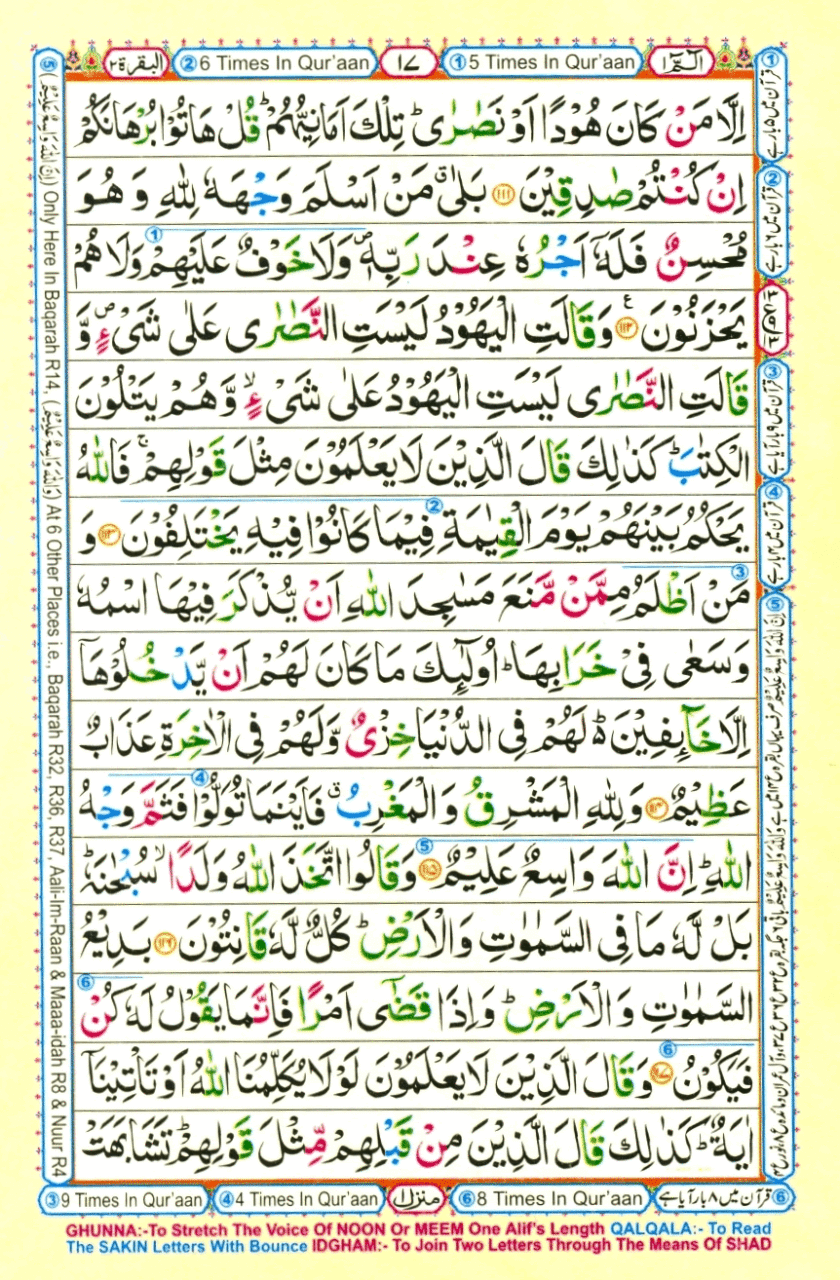 الٓمّٓ ۱
① 5 Times In Qur'aan
۱۷
② 6 Times In Qur'aan
البقرة ۲
اِلَّا مَنْ كَانَ هُوْدًا اَوْ نَصٰرٰى ؕ تِلْكَ اَمَانِيُّهُمْ ؕ قُلْ هَاتُوْا بُرْهَانَكُمْ
اِنْ كُنْتُمْ صٰدِقِيْنَ ﴿۱۱۱﴾ بَلٰى ۗ مَنْ اَسْلَمَ وَجْهَهٗ لِلّٰهِ وَ هُوَ
مُحْسِنٌ فَلَهٗۤ اَجْرُهٗ عِنْدَ رَبِّهٖ ۪ وَلَا خَوْفٌ عَلَيْهِمْ وَلَا هُمْ
يَحْزَنُوْنَ ﴿۱۱۲﴾ وَقَالَتِ الْيَهُوْدُ لَيْسَتِ النَّصٰرٰى عَلٰى شَىْءٍ ۪ وَّ
قَالَتِ النَّصٰرٰى لَيْسَتِ الْيَهُوْدُ عَلٰى شَىْءٍ ۙ وَّهُمْ يَتْلُوْنَ
الْكِتٰبَ ؕ كَذٰلِكَ قَالَ الَّذِيْنَ لَا يَعْلَمُوْنَ مِثْلَ قَوْلِهِمْ ۚ فَاللّٰهُ
يَحْكُمُ بَيْنَهُمْ يَوْمَ الْقِيٰمَةِ فِيْمَا كَانُوْا فِيْهِ يَخْتَلِفُوْنَ ﴿۱۱۳﴾ وَ
مَنْ اَظْلَمُ مِمَّنْ مَّنَعَ مَسٰجِدَ اللّٰهِ اَنْ يُّذْكَرَ فِيْهَا اسْمُهٗ
وَسَعٰى فِىْ خَرَابِهَا ؕ اُولٰٓئِكَ مَا كَانَ لَهُمْ اَنْ يَّدْخُلُوْهَاۤ
اِلَّا خَآئِفِيْنَ ؕ۬ لَهُمْ فِى الدُّنْيَا خِزْىٌ وَّلَهُمْ فِى الْاٰخِرَةِ عَذَابٌ
عَظِيْمٌ ﴿۱۱۴﴾ وَلِلّٰهِ الْمَشْرِقُ وَالْمَغْرِبُ ۗ فَاَيْنَمَا تُوَلُّوْا فَثَمَّ وَجْهُ
اللّٰهِ ؕ اِنَّ اللّٰهَ وَاسِعٌ عَلِيْمٌ ﴿۱۱۵﴾ وَقَالُوا اتَّخَذَ اللّٰهُ وَلَدًا ۙ سُبْحٰنَهٗ ؕ
بَلْ لَّهٗ مَا فِى السَّمٰوٰتِ وَالْاَرْضِ ؕ كُلٌّ لَّهٗ قَانِتُوْنَ ﴿۱۱۶﴾ بَدِيْعُ
السَّمٰوٰتِ وَالْاَرْضِ ؕ وَاِذَا قَضٰٓى اَمْرًا فَاِنَّمَا يَقُوْلُ لَهٗ كُنْ
فَيَكُوْنُ ﴿۱۱۷﴾ وَقَالَ الَّذِيْنَ لَا يَعْلَمُوْنَ لَوْلَا يُكَلِّمُنَا اللّٰهُ اَوْ تَاْتِيْنَاۤ
اٰيَةٌ ؕ كَذٰلِكَ قَالَ الَّذِيْنَ مِنْ قَبْلِهِمْ مِّثْلَ قَوْلِهِمْ ؕ تَشَابَهَتْ
① قرآن میں ۵ بار ہے
② قرآن میں ۶ بار ہے
③ قرآن میں ۹ بار آیا ہے
④ قرآن میں ۴ بار ہے
⑤ (اِنَّ اللّٰهَ وَاسِعٌ عَلِيْمٌ) Only Here In Baqarah R14, (وَاللّٰهُ وَاسِعٌ عَلِيْمٌ) At 6 Other Places i.e., Baqarah R32, R36, R37, Aali-Im-Raan & Maaa-idah R8 & Nuur R4
⑥ قرآن میں ۸ بار آیا ہے
⑥ 8 Times In Qur'aan
منزل ۱
④ 4 Times In Qur'aan
③ 9 Times In Qur'aan
GHUNNA:-To Stretch The Voice Of NOON Or MEEM One Alif's Length QALQALA:- To Read
The SAKIN Letters With Bounce IDGHAM:- To Join Two Letters Through The Means Of SHAD